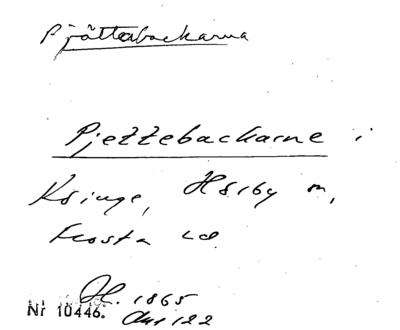 Pjätteabackarna
Pjezzebackarne i
Ksinge, Hörby m,
Frosta Ld.
H. 1865
Nr 10446. Aur 122